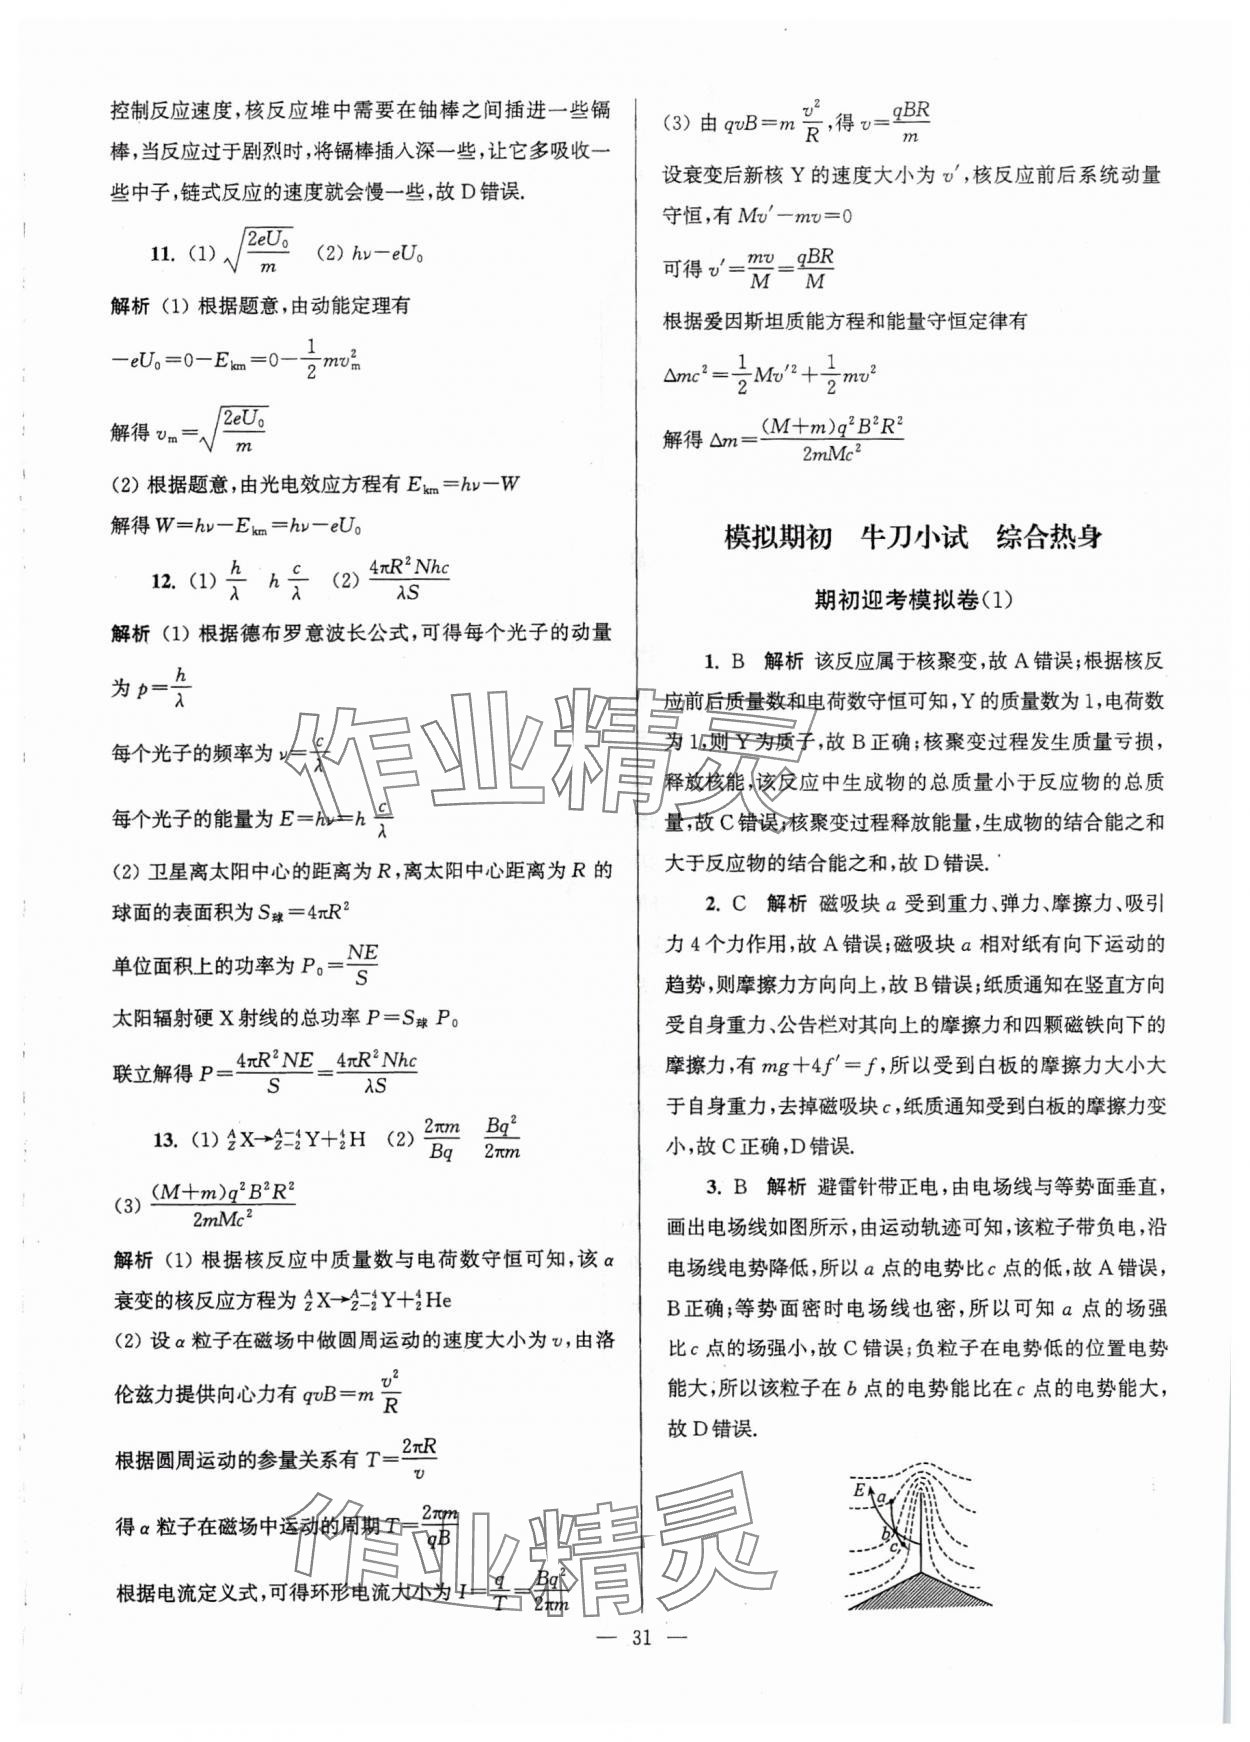 控制反应速度,核反应堆中需要在铀棒之间插进一些镉
棒,当反应过于剧烈时,将镉棒插入深一些,让它多吸收一
些中子,链式反应的速度就会慢一些,故 D 错误.
11. (1) √(2eU₀/m) (2) hν−eU₀
解析 (1) 根据题意,由动能定理有
−eU₀=0−E_km=0−1/2 mv_m²
解得 v_m=√(2eU₀/m)
(2) 根据题意,由光电效应方程有 E_km=hν−W
解得 W=hν−E_km=hν−eU₀
12. (1) h/λ h c/λ (2) 4πR²Nhc/λS
解析 (1) 根据德布罗意波长公式,可得每个光子的动量
为 p=h/λ
每个光子的频率为 ν=c/λ
每个光子的能量为 E=hν=h c/λ
(2) 卫星离太阳中心的距离为 R,离太阳中心距离为 R 的
球面的表面积为 S球=4πR²
单位面积上的功率为 P₀=NE/S
太阳辐射硬 X 射线的总功率 P=S球 P₀
联立解得 P=4πR²NE/S=4πR²Nhc/λS
13. (1) ᴬ_Z X→ᴬ⁻⁴_Z−2 Y+⁴₂H (2) 2πm/Bq Bq²/2πm
(3) (M+m)q²B²R²/2mMc²
解析 (1) 根据核反应中质量数与电荷数守恒可知,该 α
衰变的核反应方程为 ᴬ_Z X→ᴬ⁻⁴_Z−2 Y+⁴₂He
(2) 设 α 粒子在磁场中做圆周运动的速度大小为 v,由洛
伦兹力提供向心力有 qvB=m v²/R
根据圆周运动的参量关系有 T=2πR/v
得 α 粒子在磁场中运动的周期 T=2πm/qB
根据电流定义式,可得环形电流大小为 I=q/T=Bq²/2πm
(3) 由 qvB=m v²/R,得 v=qBR/m
设衰变后新核 Y 的速度大小为 v′,核反应前后系统动量
守恒,有 Mv′−mv=0
可得 v′=mv/M=qBR/M
根据爱因斯坦质能方程和能量守恒定律有
Δmc²=1/2 Mv′²+1/2 mv²
解得 Δm=(M+m)q²B²R²/2mMc²
模拟期初 牛刀小试 综合热身
期初迎考模拟卷(1)
1. B 解析 该反应属于核聚变,故 A 错误;根据核反
应前后质量数和电荷数守恒可知,Y 的质量数为 1,电荷数
为 1,则 Y 为质子,故 B 正确;核聚变过程发生质量亏损,
释放核能,该反应中生成物的总质量小于反应物的总质
量,故 C 错误;核聚变过程释放能量,生成物的结合能之和
大于反应物的结合能之和,故 D 错误.
2. C 解析 磁吸块 a 受到重力、弹力、摩擦力、吸引
力 4 个力作用,故 A 错误;磁吸块 a 相对纸有向下运动的
趋势,则摩擦力方向向上,故 B 错误;纸质通知在竖直方向
受自身重力、公告栏对其向上的摩擦力和四颗磁铁向下的
摩擦力,有 mg+4f′=f,所以受到白板的摩擦力大小大
于自身重力,去掉磁吸块 c,纸质通知受到白板的摩擦力变
小,故 C 正确,D 错误.
3. B 解析 避雷针带正电,由电场线与等势面垂直,
画出电场线如图所示,由运动轨迹可知,该粒子带负电,沿
电场线电势降低,所以 a 点的电势比 c 点的低,故 A 错误,
B 正确;等势面密时电场线也密,所以可知 a 点的场强
比 c 点的场强小,故 C 错误;负粒子在电势低的位置电势
能大,所以该粒子在 b 点的电势能比在 c 点的电势能大,
故 D 错误.
E a b c
作业精灵
作业精灵
— 31 —